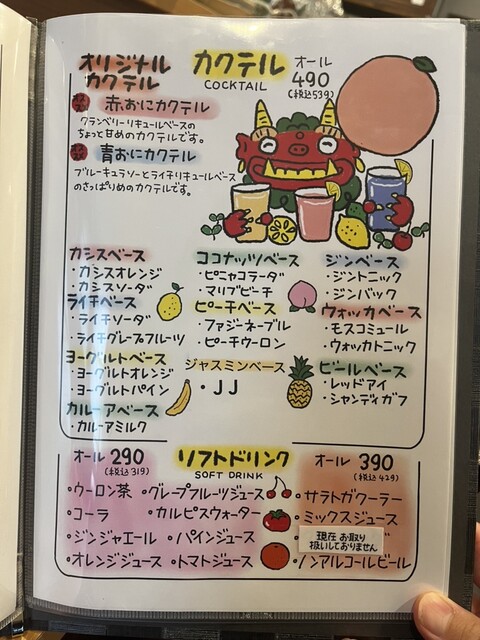 オリジナル
カクテル
カクテル
COCKTAIL
オール
490
(税込539)
赤おにカクテル
クランベリーリキュールベースの
ちょっと甘めのカクテルです。
青おにカクテル
ブルーキュラソーとライチリキュールベース
のさっぱりめのカクテルです。
カシスベース
・カシスオレンジ
・カシスソーダ
ライチベース
・ライチソーダ
・ライチグレープフルーツ
ヨーグルトベース
・ヨーグルトオレンジ
・ヨーグルトパイン
カルーアベース
・カルーアミルク
ココナッツベース
・ピニャコラーダ
・マリブピーチ
ピーチベース
・ファジーネーブル
・ピーチウーロン
ジャスミンベース
・JJ
ジンベース
・ジントニック
・ジンバック
ウォッカベース
・モスコミュール
・ウォッカトニック
ビールベース
・レッドアイ
・シャンディガフ
ソフトドリンク
SOFT DRINK
オール 290
(税込319)
・ウーロン茶
・グレープフルーツジュース
・コーラ
・カルピスウォーター
・ジンジャエール
・パインジュース
・オレンジジュース
・トマトジュース
オール 390
(税込429)
・サラトガクーラー
・ミックスジュース
現在お取り
扱いしておりません
・ノンアルコールビール